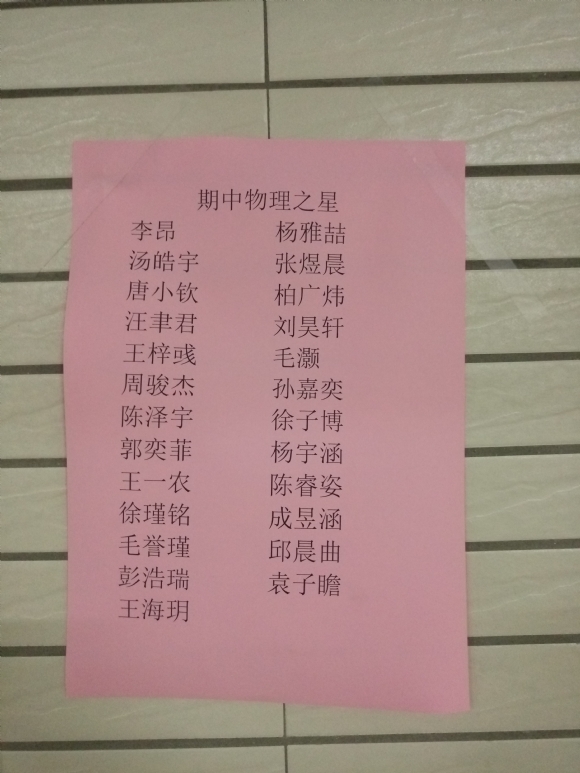 期中物理之星
李昂 杨雅喆
汤皓宇 张煜晨
唐小钦 柏广炜
汪聿君 刘昊轩
王梓彧 毛灏
周骏杰 孙嘉奕
陈泽宇 徐子博
郭奕菲 杨宇涵
王一农 陈睿姿
徐瑾铭 成昱涵
毛誉瑾 邱晨曲
彭浩瑞 袁子瞻
王海玥